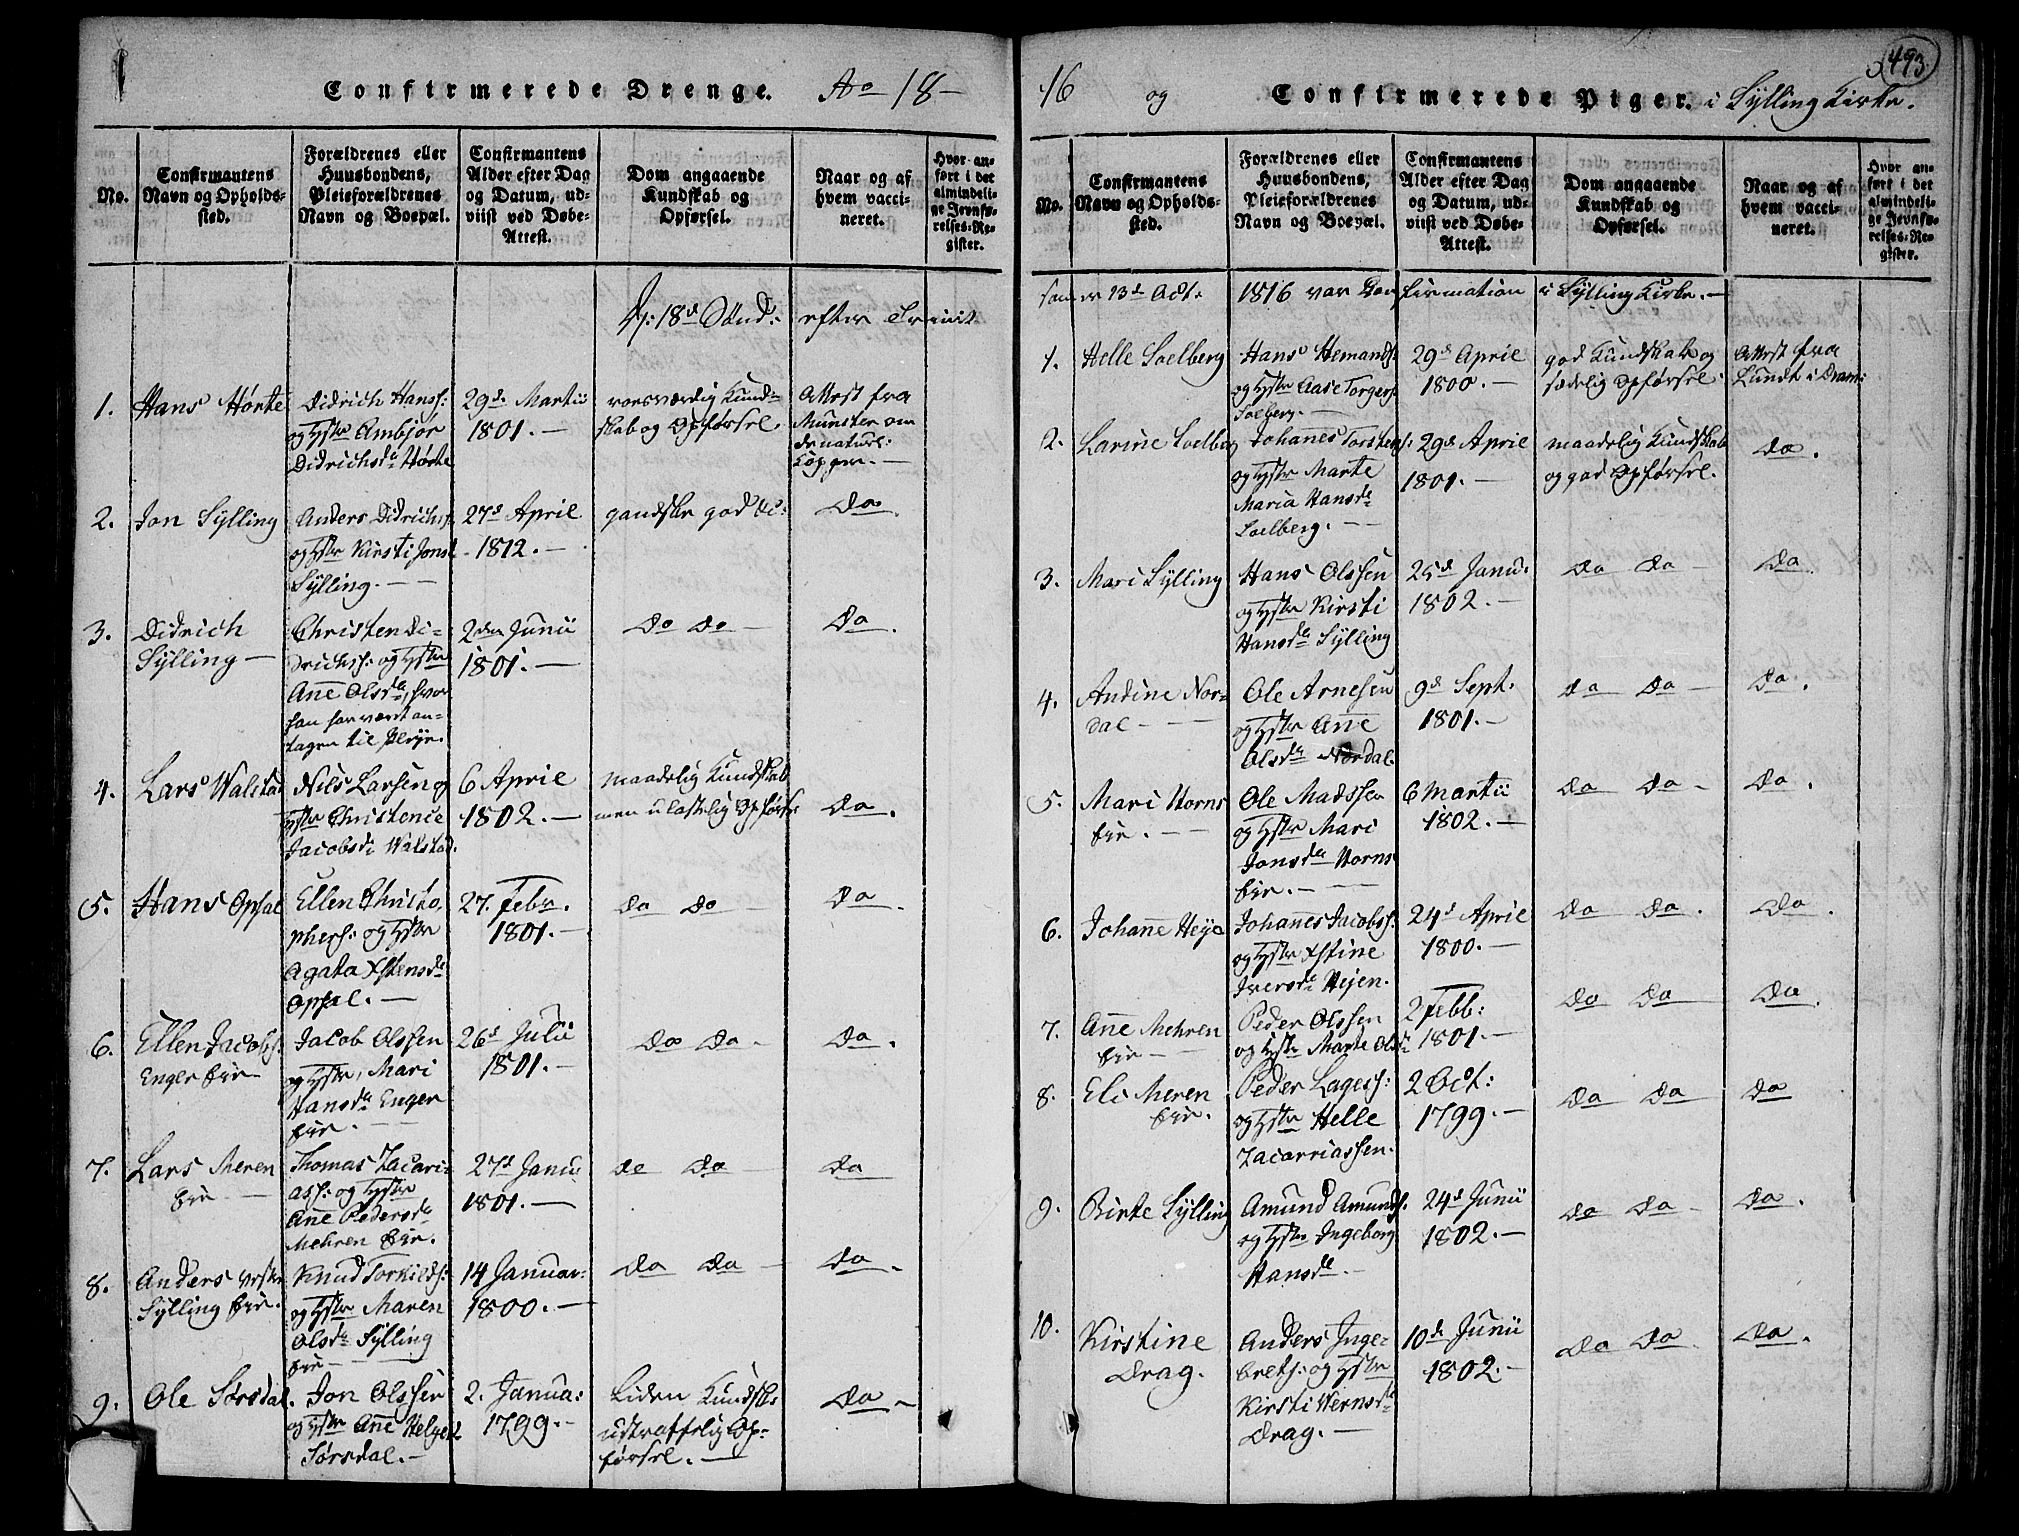 Confirmerede Drenge. Ao 18-
No.
Confirmantens
Navn og Opholds-
sted.
Forældrenes eller
Huusbondens,
Pleieforældrenes
Navn og Boepæl.
Confirmantens
Alder efter Dag
og Datum, ud-
viist ved Døbe-
Attest.
Dom angaaende
Kundskab og
Opførsel.
Naar og af
hvem vacci-
neret.
Hvor an-
ført i det
almindeli-
ge Jevnfø-
relses-Re-
gister.
D: 18d Sønd: efter Trinit
1. Hans Hørte
Didrich Hanss:
og Hstr Ambjør
Didrichsdr Hørte
29de Martii
1801. —
roesværdig Kund-
skab og Opførsel.
Attest fra
Munster om
de naturl:
Kopper. —
2. Jon Sylling
Anders Didrichs:
og Hstr Kirsti Jonsd
Sylling. —
27d April
1812. —
gandske god &c:
Do.
3. Didrich
Sylling —
Christen Di-
drichss: og Hstr
Ane Olsdr, hvor
han har været an-
tagen til Pleje.
2den Junii
1801. —
Do Do —
Do.
4. Lars Walstad
Nils Larsen og
Hstr Christence
Jacobsdr Walstad.
6 April
1802. —
maadelig Kundskab
men ulastelig Opførsel
Do.
5. Hans Opsal
Ellen Christo-
phers: og Hstr
Agata Xstensdr
Opsal. —
27. Febr.
1801. —
Do Do —
Do.
6. Ellen Jacobs:
Enger Eje —
Jacob Olssen
og Hstr Mari
Hansdr Enger
Eje. —
26d Julii
1801. —
Do Do —
Do.
7. Lars Meren
Eje —
Thomas Zacari-
ass: og Hstr
Ane Pedersdr
Mehren Eje.
27d Janu
1801. —
Do Do —
Do
8. Anders Vestre
Sylling Eje.
Knud Torkilds:
og Hstr Maren
Olsdr Sylling
Eje —
14 Januar:
1800. —
Do Do —
Do.
9. Ole Sørsdal.
Jon Olssen
og Hstr Ane Helgesd
Sørsdal. —
2. Janua:
1799. —
Liden Kundsk:
udtraffelig Op-
førsel. —
Do. —
493
16 og Confirmerede Piger. i Sylling Kirke.
No.
Confirmantens
Navn og Opholds-
sted.
Forældrenes eller
Huusbondens,
Pleieforældrenes
Navn og Boepæl.
Confirmantens
Alder efter Dag
og Datum, ud-
viist ved Døbe-
Attest.
Dom angaaende
Kundskab og
Opførsel.
Naar og af
hvem vacci-
neret.
Hvor an-
ført i det
almindeli-
ge Jevnfø-
relses-Re-
gister.
som er 13d Oct: 1816 var Confirmation i Sylling Kirke. —
1. Helle Soelberg
Hans Hemands:
og Hstr Aase Torgers:
Solberg. —
29d April
1800. —
god Kundskab og
sædelig Opførsel.
Attest fra
Lundt i Dram:
2. Larine Soelberg
Johannes Torstens:
og Hstr Marte
Maria Hansdr
Soelberg. —
29d April
1801. —
maadelig Kundskab
og god Opførsel.
Do.
3. Mari Sylling
Hans Olssen
og Hstr Kirsti
Hansdr Sylling
25d Janu.
1802. —
Do Do —
Do
4. Andine Nor-
dal —
Ole Arnesen
og Hstr Ane
Olsdr Nordal.
9d Sept.
1801. —
Do Do —
Do.
5. Mari Horns
Eje. —
Ole Madssen
og Hstr Mari
Jonsdr Horns
Eje. —
6 Martii
1802. —
Do Do —
Do.
6. Johane Heye
Johannes Jacobss:
og Hstr Xstine
Iversdr Hejen.
24d April
1800. —
Do Do.
Do.
7. Ane Mehren
Eje —
Peder Olssen
og Hstr Marte Olsd
2 Febb:
1801. —
Do Do
Do.
8. Eli Meren
Eje.
Peder Lagess:
og Hstr Helle
Zacarriassen.
2 Oct:
1799. —
Do Do
Do
9. Birte Sylling
Amund Amunds:
og Hstr Ingeborg
Hansdr. —
24d Junii
1802. —
Do Do —
Do.
10. Kirstine
Drag.
Anders Inge-
brets: og Hstr
Kirsti Wernsdr
Drag. —
10de Junii
1802. —
Do Do
Do.